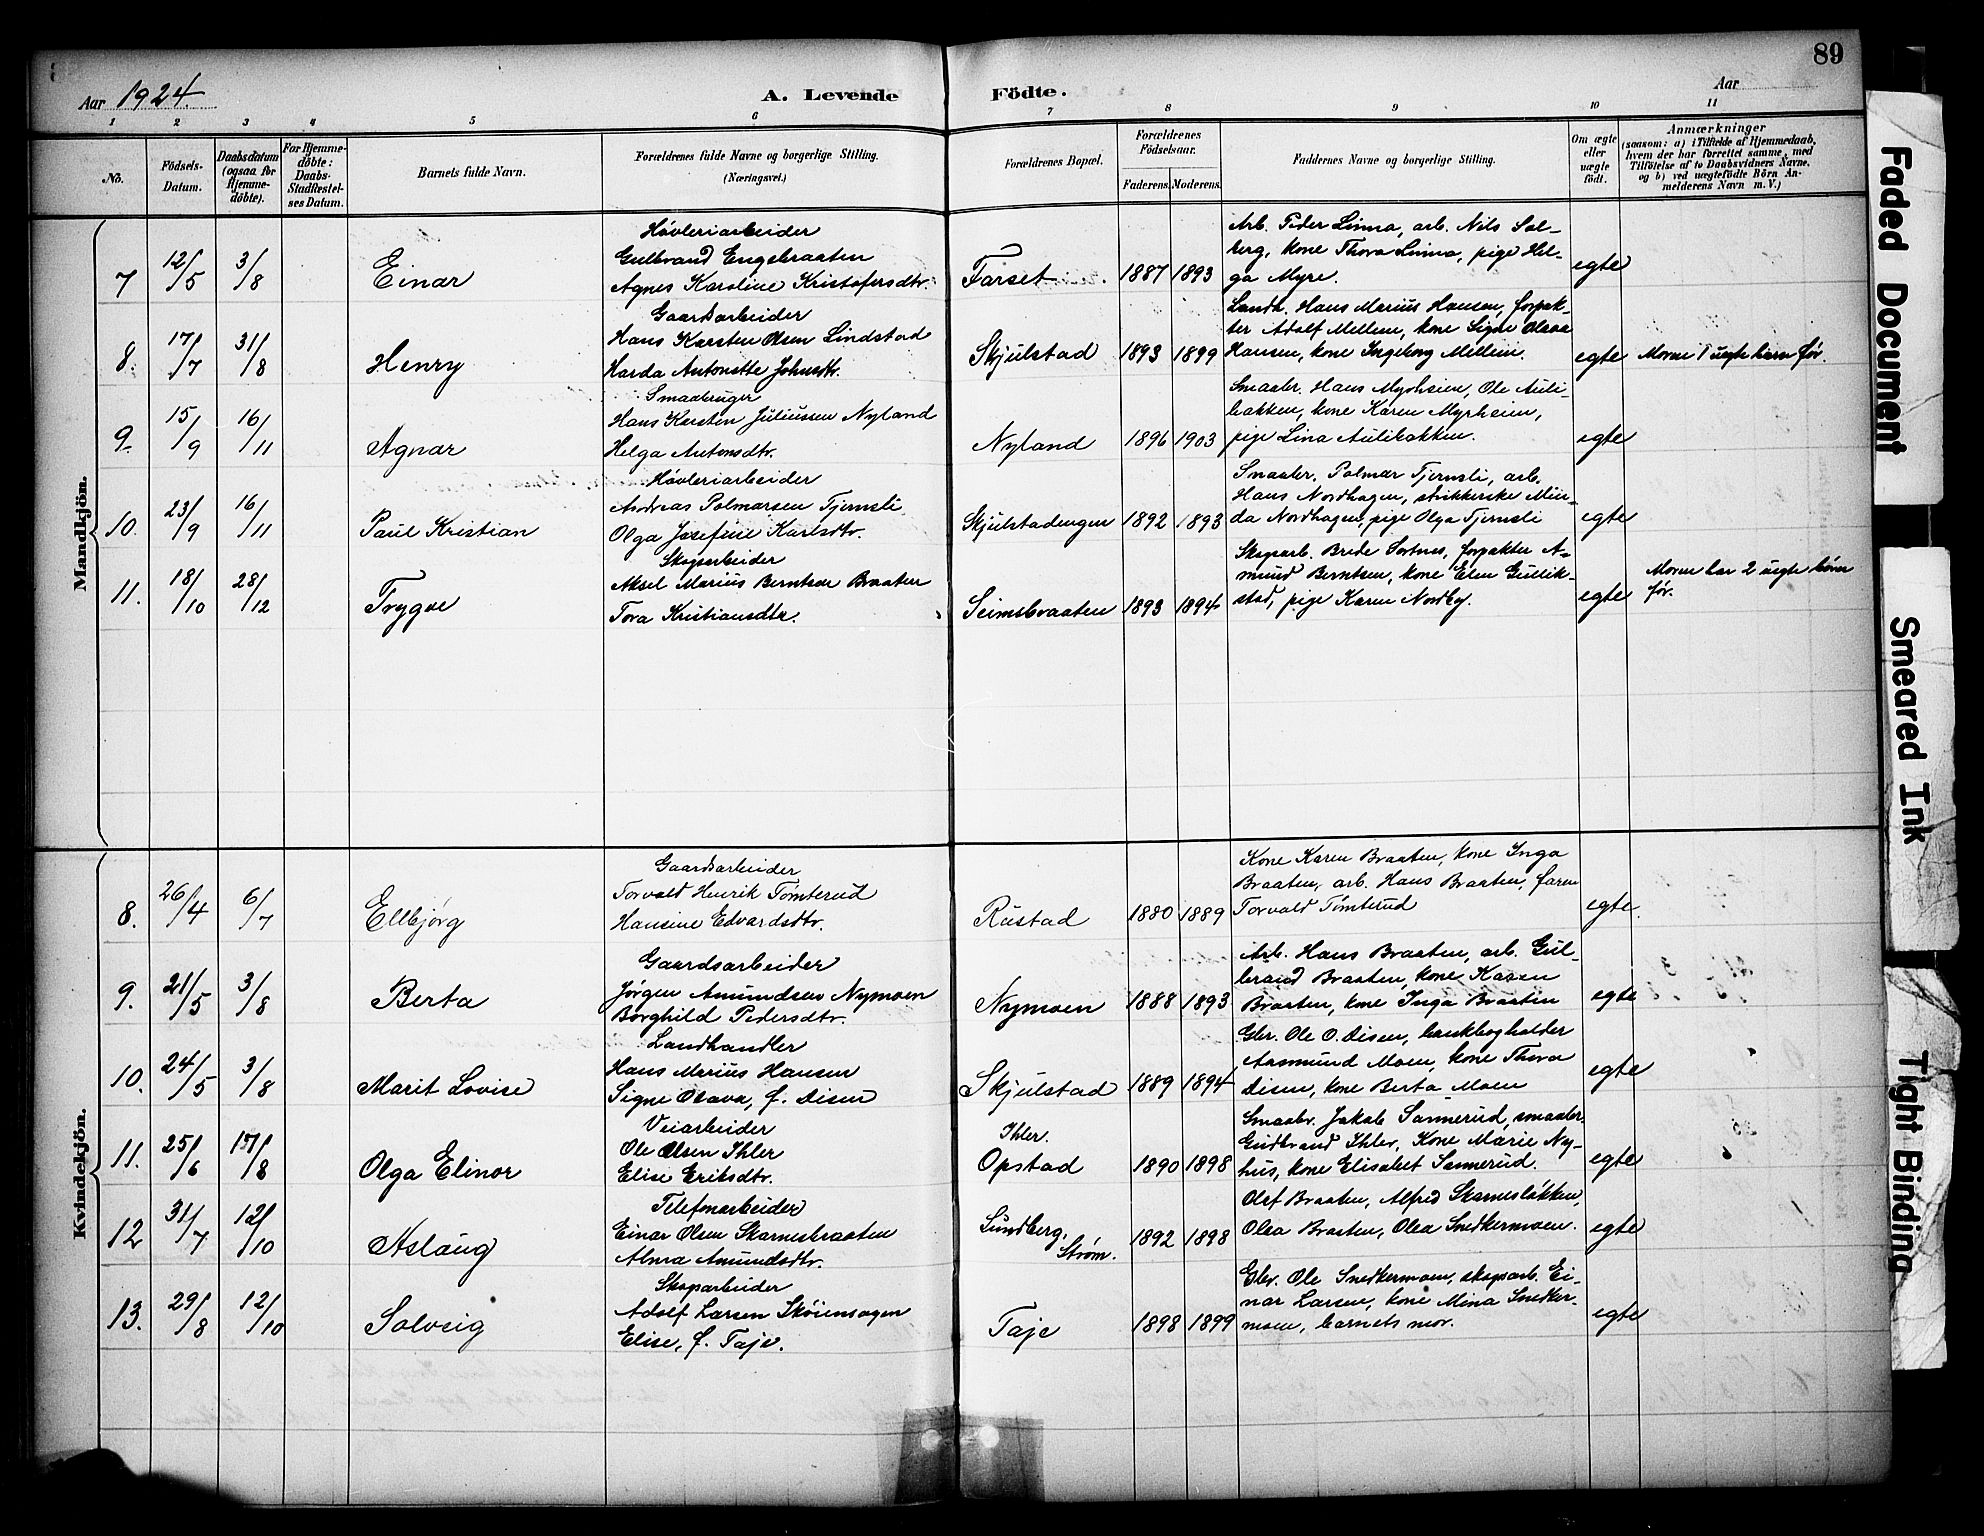 89
Aar 1924. A. Levende Fødte. Aar
1 2 3 4 5 6 7 8 9 10 11
No.
Födsels-
Datum.
Daabsdatum
(ogsaa for
Hjemme-
döbte).
For Hjemme-
döbte:
Daabs-
Stadfæstel-
ses Datum.
Barnets fulde Navn.
Forældrenes fulde Navne og borgerlige Stilling.
(Næringsvei.)
Forældrenes Bopæl.
Forældrenes
Födselsaar.
Faderens. Moderens.
Faddernes Navne og borgerlige Stilling.
Om ægte
eller
uægte
födt.
Anmærkninger
(saasom: a) i Tilfælde af Hjemmedaab,
hvem der har forrettet samme, med
Tilföielse af to Daabsvidners Navne,
og b) ved uægtefödte Börn An-
melderens Navn m. V.)
Mandkjön.
7 12/5 3/8 Einar
Høvleriarbeider
Gulbrand Engebraaten
Agnes Karoline Kristofersdtr.
Farset 1887 1893
Arb. Peder Linna, arb. Nils Sol-
berg, kone Thora Linna, pige Hel-
ga Myre.
egte
8. 17/7 31/8 Henry
Gaardsarbeider
Hans Karsten Olsen Lindstad
Harda Antonette Johnsdtr.
Skjulstad 1893 1899
Landh. Hans Marius Hansen, forpak-
ter Adolf Mellem, kone Signe Olava
Hansen, kone Ingeborg Mellem.
egte Moren 1 uegte barn før.
9. 15/9 16/11 Agnar
Smaabruger
Hans Karsten Juliussen Nyland
Helga Antonsdtr.
Nyland 1896 1903
Smaabr. Hans Myrheim, Ole Auli-
bakken, kone Karen Myrheim,
pige Lina Aulibakken.
egte
10. 23/9 16/11 Paul Kristian
Høvleriarbeider
Andreas Palmarsen Tjernsli
Olga Josefine Karlsdtr.
Skjulstadengen 1892 1893
Smaabr. Palmar Tjernsli, arb.
Hans Nordhagen, strikkerske Min-
da Nordhagen, pige Olga Tjernsli
egte
11. 18/10 28/12 Trygve
Skogsarbeider
Aksel Marius Berntsen Braaten
Tora Kristiansdtr.
Seimsbraaten 1893 1894
Skogarb. Brede Sætnes, forpakter A-
mund Berntsen, kone Elen Gullik-
stad, pige Karen Nordby.
egte
Moren har 2 uegte børn
før.
Kvindekjön.
8. 26/4 6/7 Ellbjørg
Gaardsarbeider
Torvald Henrik Tømterud
Hansine Edvardsdtr.
Rustad 1880 1889
Kone Karen Braaten, kone Inga
Braaten, arb. Hans Braaten, faren
Torvald Tømterud
egte.
9. 21/5 3/8 Berta
Gaardsarbeider
Jørgen Amundsen Nymoen
Borghild Pedersdtr.
Nymoen 1888 1893
Arb. Hans Braaten, arb. Gul-
brand Braaten, kone Karen
Braaten, kone Inga Braaten
egte
10. 24/5 3/8 Marit Lovise
Landhandler
Hans Marius Hansen
Signe Olava, f. Disen
Skjulstad 1889 1894
Gbr. Ole O. Disen, bankbogholder
Aasmund Moen, kone Thora
Disen, kone Berta Moen
egte
11. 25/6 17/8 Olga Elinor
Veiarbeider
Ole Olsen Ihler
Elise Eriksdtr.
Ihler.
Opstad 1890 1898
Smaabr. Jakob Sannerud, smaabr.
Gudbrand Ihler, kone Marie Ny-
hus, kone Elisabet Sannerud.
egte
12 31/7 12/10 Aslaug
Telefonarbeider
Einar Olsen Skarnesbraaten
Alma Amundsdtr.
Sundberg,
Strøm. 1892 1898
Olaf Braaten, Alfred Skarnesløkken,
Olea Braaten, Olea Snedkermoen.
egte
13. 29/8 12/10 Solveig
Skogarbeider
Adolf Larsen Skøienhagen
Elise, f. Taje.
Taje 1898 1899
Gbr. Ole Snedkermoen, skogsarb. Ei-
nar Larsen, kone Mina Snedker-
moen, barnets mor.
egte
Faded Document
Smeared Ink
Tight Binding